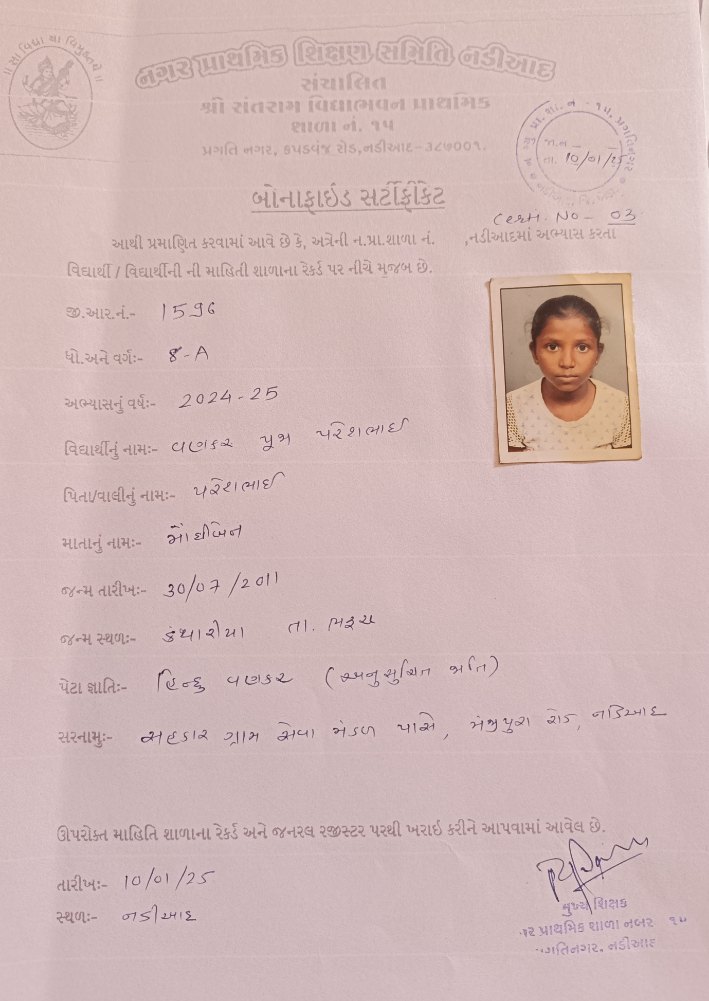 ॥ સા વિદ્યા યા વિમુક્તયે ॥
નગર પ્રાથમિક શિક્ષણ સમિતિ નડીઆદ
સંચાલિત
શ્રી સંતરામ વિદ્યાભવન પ્રાથમિક
શાળા નં. ૧૫
પ્રગતિ નગર, કપડવંજ રોડ,નડીઆદ-૩૮૭૦૦૧.
તા. 10/01/25
બોનાફાઇડ સર્ટીફીકેટ
Certi. No - 03
આથી પ્રમાણિત કરવામાં આવે છે કે, અત્રેની ન.પ્રા.શાળા નં. ,નડીઆદમાં અભ્યાસ કરતા
વિદ્યાર્થી / વિદ્યાર્થીની ની માહિતી શાળાના રેકર્ડ પર નીચે મુજબ છે.
જી.આર.નં.- 1596
ધો.અને વર્ગ:- 8-A
અભ્યાસનું વર્ષ:- 2024-25
વિદ્યાર્થીનું નામ:- વણકર પૂજા પરેશભાઈ
પિતા/વાલીનું નામ:- પરેશભાઈ
માતાનું નામ:-
જન્મ તારીખ:- 30/07/2011
જન્મ સ્થળ:- તા. ભરૂચ
પેટા જ્ઞાતિ:- હિન્દુ વણકર (અનુસુચિત જાતિ)
સરનામુ:- સહકાર ગ્રામ સેવા મંડળ પાસે, મંજીપુરા રોડ, નડિઆદ
ઊપરોક્ત માહિતિ શાળાના રેકર્ડ અને જનરલ રજીસ્ટર પરથી ખરાઇ કરીને આપવામાં આવેલ છે.
તારીખ:- 10/01/25
સ્થળ:- નડીઆદ
મુખ્ય શિક્ષક
પ્રાથમિક શાળા નંબર ૧૫
પ્રગતિનગર, નડીઆદ